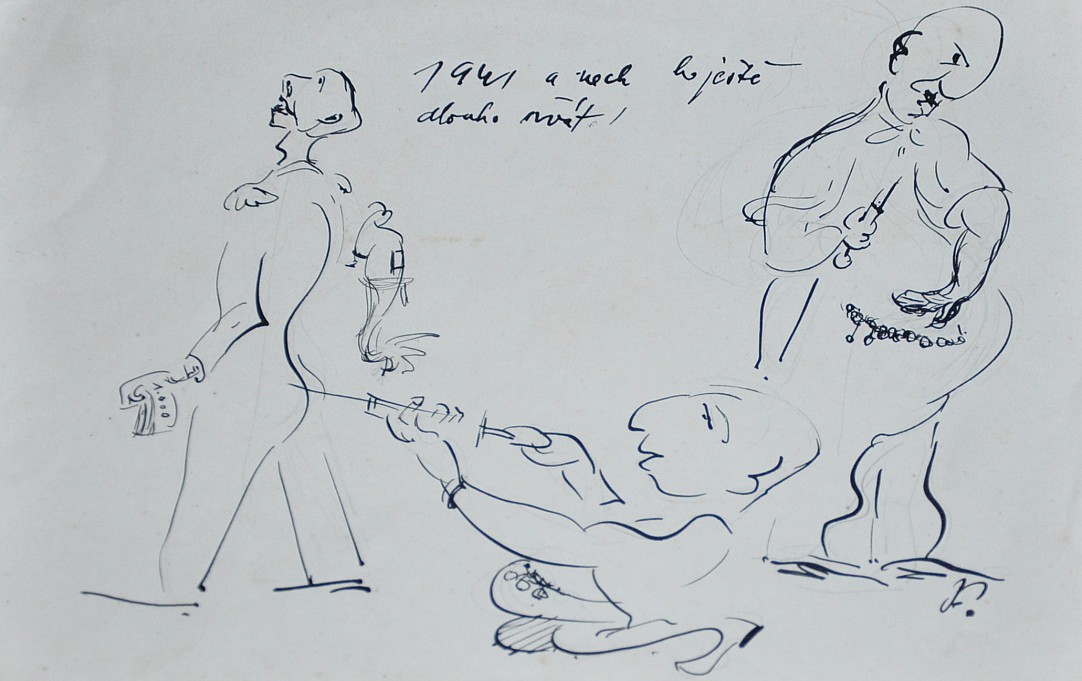 1941 a nech ho ještě
dlouho